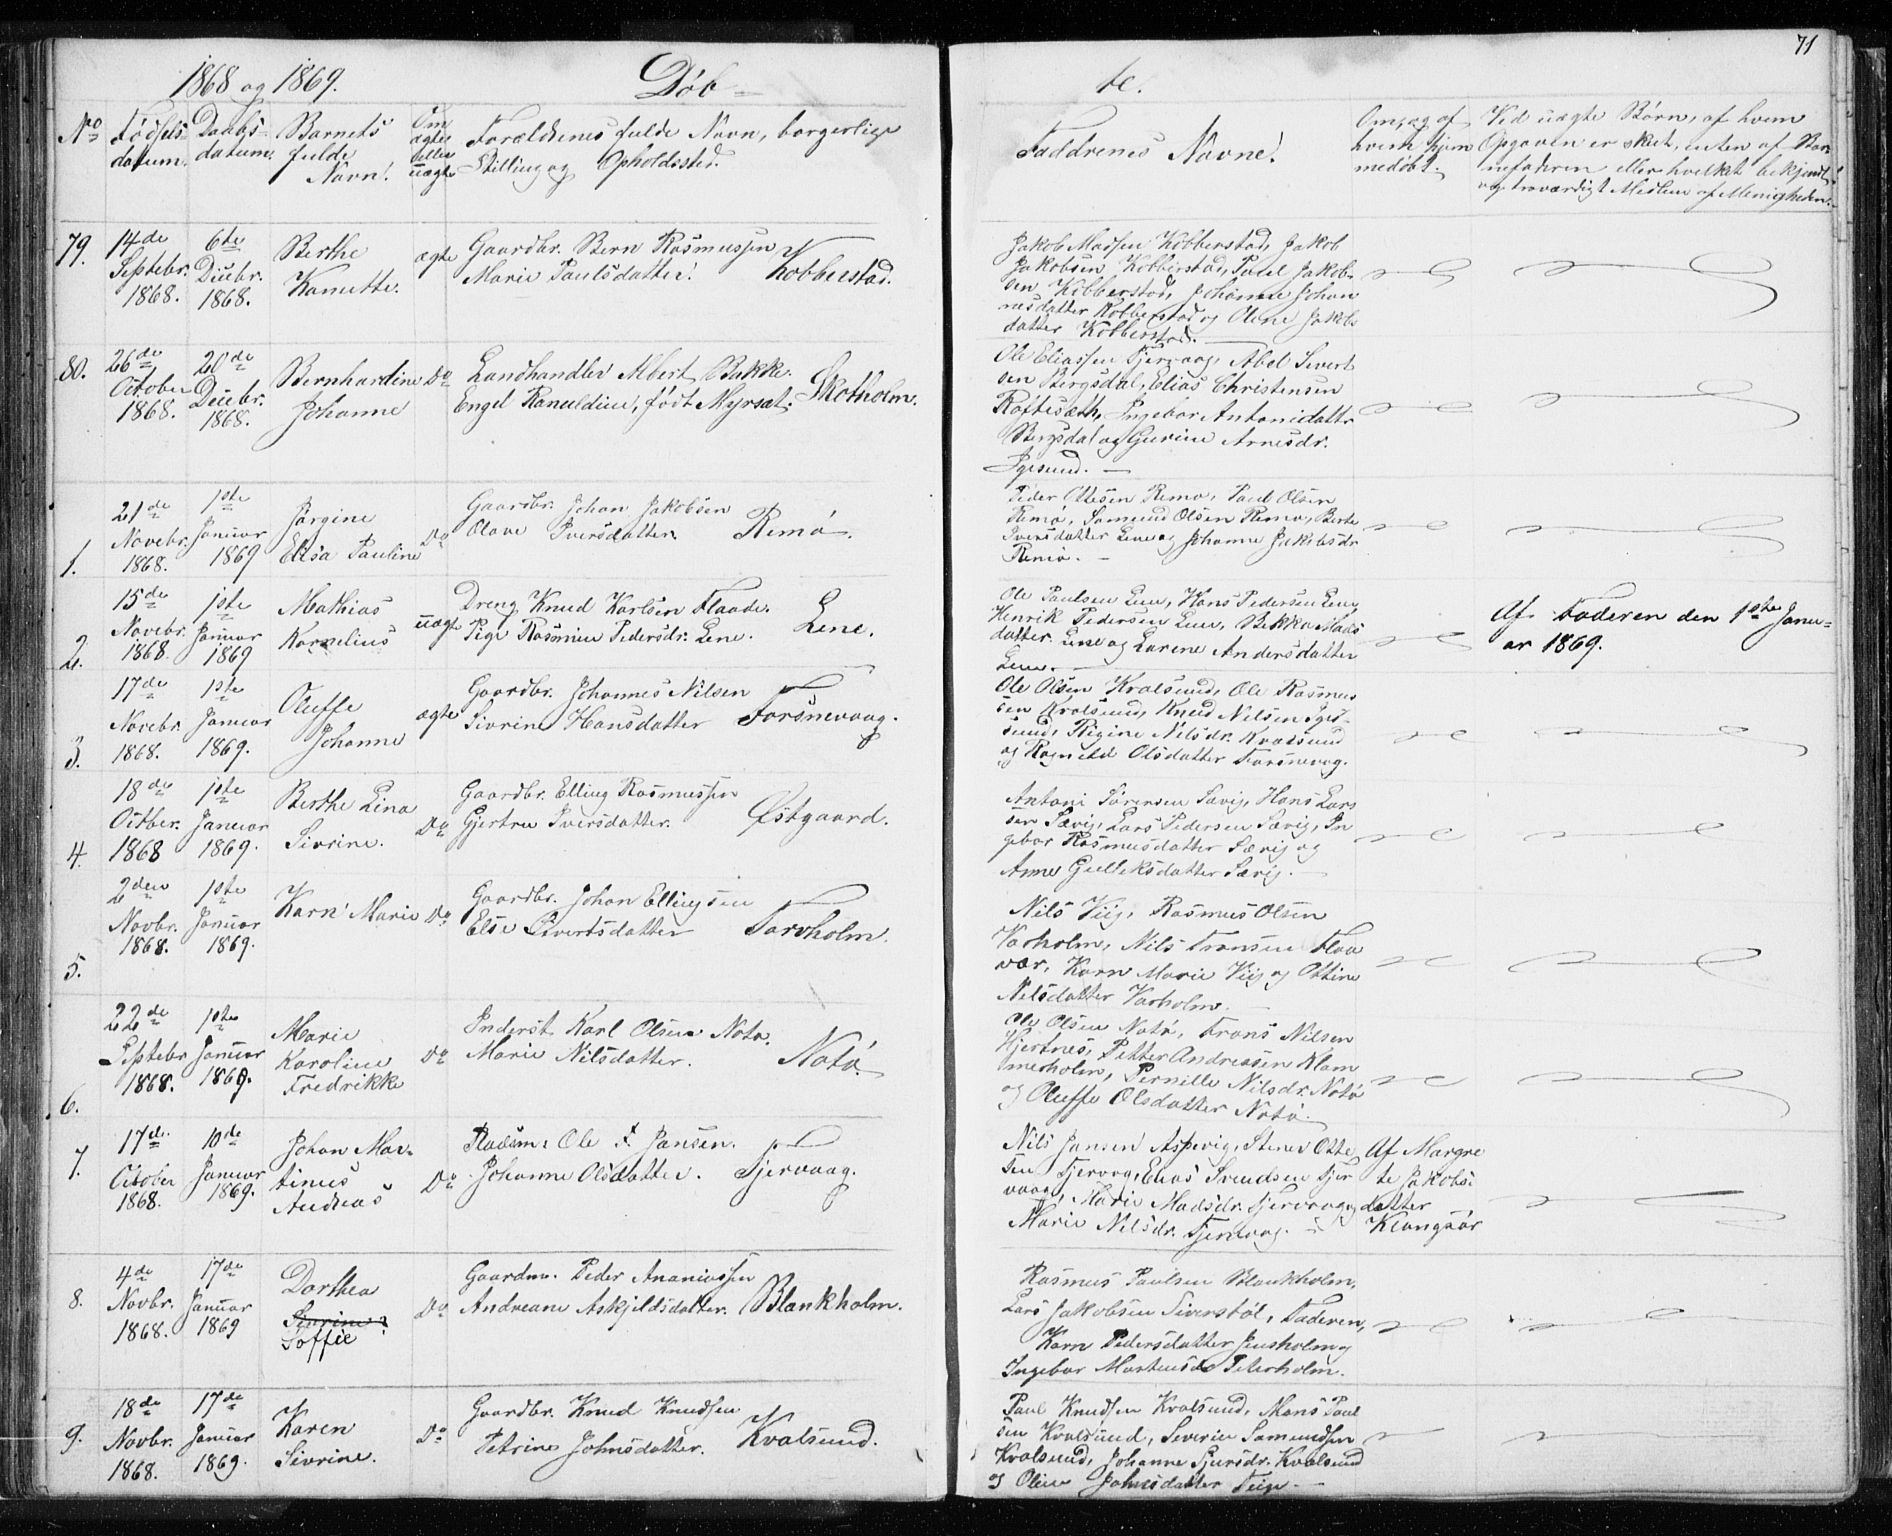 71
1868 og 1869. Døb-
te.
No
Fødsels-
datum.
Daabs-
datum.
Barnets
fulde
Navn.
Om
ægte
eller
uægte
Forældrenes fulde Navn, borgerlige
Stilling og Opholdssted.
Faddrenes Navne.
Om, og af
hvem hjem
medøbt.
Ved uægte Børn, af hvem
Opgaven er skeet, enten af Bar-
nefaderen eller hvilket bekjendt
og troværdigt Medlem af Menigheden.
79.
14de
Septebr.
1868.
6te
Decbr.
1868.
Berthe
Kanutte.
ægte
Gaardbr. Bern Rasmussen
Marie Paulsdatter.
Kobberstad.
Jakob Madsen Kobberstad, Jakob
Jakobsen Kobberstad, Paul Jakob-
sen Kobberstad, Johanne Johan
nesdatter Kobberstad og Olene Jakobs
datter Kobberstad.
80.
26de
October
1868.
20de
Decbr.
1868.
Bernhardine
Johanne
Do
Landhandler Albert Bakke.
Engel Ranuldine, født Myrsæt.
Skotholm.
Ole Eliassen Tjervaag, Abel Sivert
sen Bergsdal, Elias Christensen
Roftesæth, Ingebor Antonidattr
Bergsdal og Gurine Arnesdr.
Igesund.
1.
21de
Novebr.
1868.
1ste
Januar
1869
Jørgine
Elisa Pauline
Do
Gaardbr. Johan Jakobsen
Olave Iversdatter.
Remø.
Peder Ottesen Remø, Paul Olsen
Remø, Samund Olsen Remø, Berte
Iversdatter Lene og Johanne Jakobsdr
Remø.
2.
15de
Novebr.
1868.
1ste
Januar
1869
Mathias
Kornelius
uægte
Dreng Knud Karlsen Flaade.
Pige Rasmine Pedersdr. Lene.
Lene.
Ole Paulsen Lene, Hans Pedersen Lene,
Henrik Pedersen Lene, Bekka Mads
datter Lene og Larine Andersdatter
Lene.
Af Faderen den 1ste Janu-
ar 1869.
3.
17de
Novebr.
1868.
1ste
Januar
1869.
Oluffe
Johanne
ægte
Gaardbr. Johannes Nilsen
Sivrine Hansdatter
Torsnevaag.
Ole Olsen Kvalsund, Ole Rasmus
sen Kvalsund, Knud Nilsen Iges-
sund, Rigine Nilsdr. Kvalsund
og Ragnild Olsdatter Torsnevag.
4.
18de
Octber.
1868
1ste
Januar
1869.
Berthe Lina
Sivrine.
Do
Gaardbr. Elling Rasmussen
Gjertru Iversdatter.
Østgaard.
Antoni Sørensen Sævig, Hans Lars
sen Sævig, Lars Pedersen Sævig, In
gebor Rasmusdatter Sævig og
Anne Gulleksdatter Sævig.
5.
2den
Novbr.
1868.
1ste
Januar
1869.
Karn Marie
Do
Gaardbr. Johan Ellingsen
Else Sivertsdatter
Torvholm.
Nils Viig, Rasmus Olsen
Varholm, Nils Fransen Flaa
vær, Karn Marie Viig og Ottine
Nilsdatter Varholm.
6.
22de
Septebr
1868.
1ste
Januar
1869.
Marie
Karoline
Fredrikke
Do
Inderst Karl Olsen Notø.
Marie Nilsdatter.
Notø
Ole Olsen Notø, Frans Nilsen
Hjertnes, Petter Andreassen Klam
merholm, Pernille Nilsdr. Notø
og Oluffe Olsdatter Notø.
7.
17de
October
1868.
10de
Januar
1869.
Johan Mar-
tinus
Andreas
Do
Pladsm. Ole Jansen.
Johanne Olsdatter.
Tjervaag.
Nils Jansen Aspevig, Stener Otte
sen Tjervag, Elias Svendsen Tjer
vaag, Marie Madsdr. Tjervaag og
Marie Nilsdr. Tjervaag.
Af Margre
te Jakobs-
datter
Klungsør
8.
4de
Novbr.
1868.
17de
Januar
1869
Dorthea
Sevrine?
Soffie
Do
Gaardm. Peder Ananiassen
Andreane Askjeldsdatter.
Blankholm.
Rasmus Paulsen Blankholm,
Lars Jakobsen Siverstøl, Faderen,
Karn Pedersdatter Jensholm og
Ingebor Martensdr Peterholm.
9.
18de
Novbr.
1868.
17de
Januar
1869.
Karen
Sivrine.
Do
Gaardbr. Knud Knudsen
Petrine Johnsdatter.
Kvalsund.
Paul Knudsen Kvalsund, Mons Paul
sen Kvalsund, Severin Samundsen
Kvalsund, Johanne Sjursdr. Kvalsund
og Oline Johnsdatter Teige.